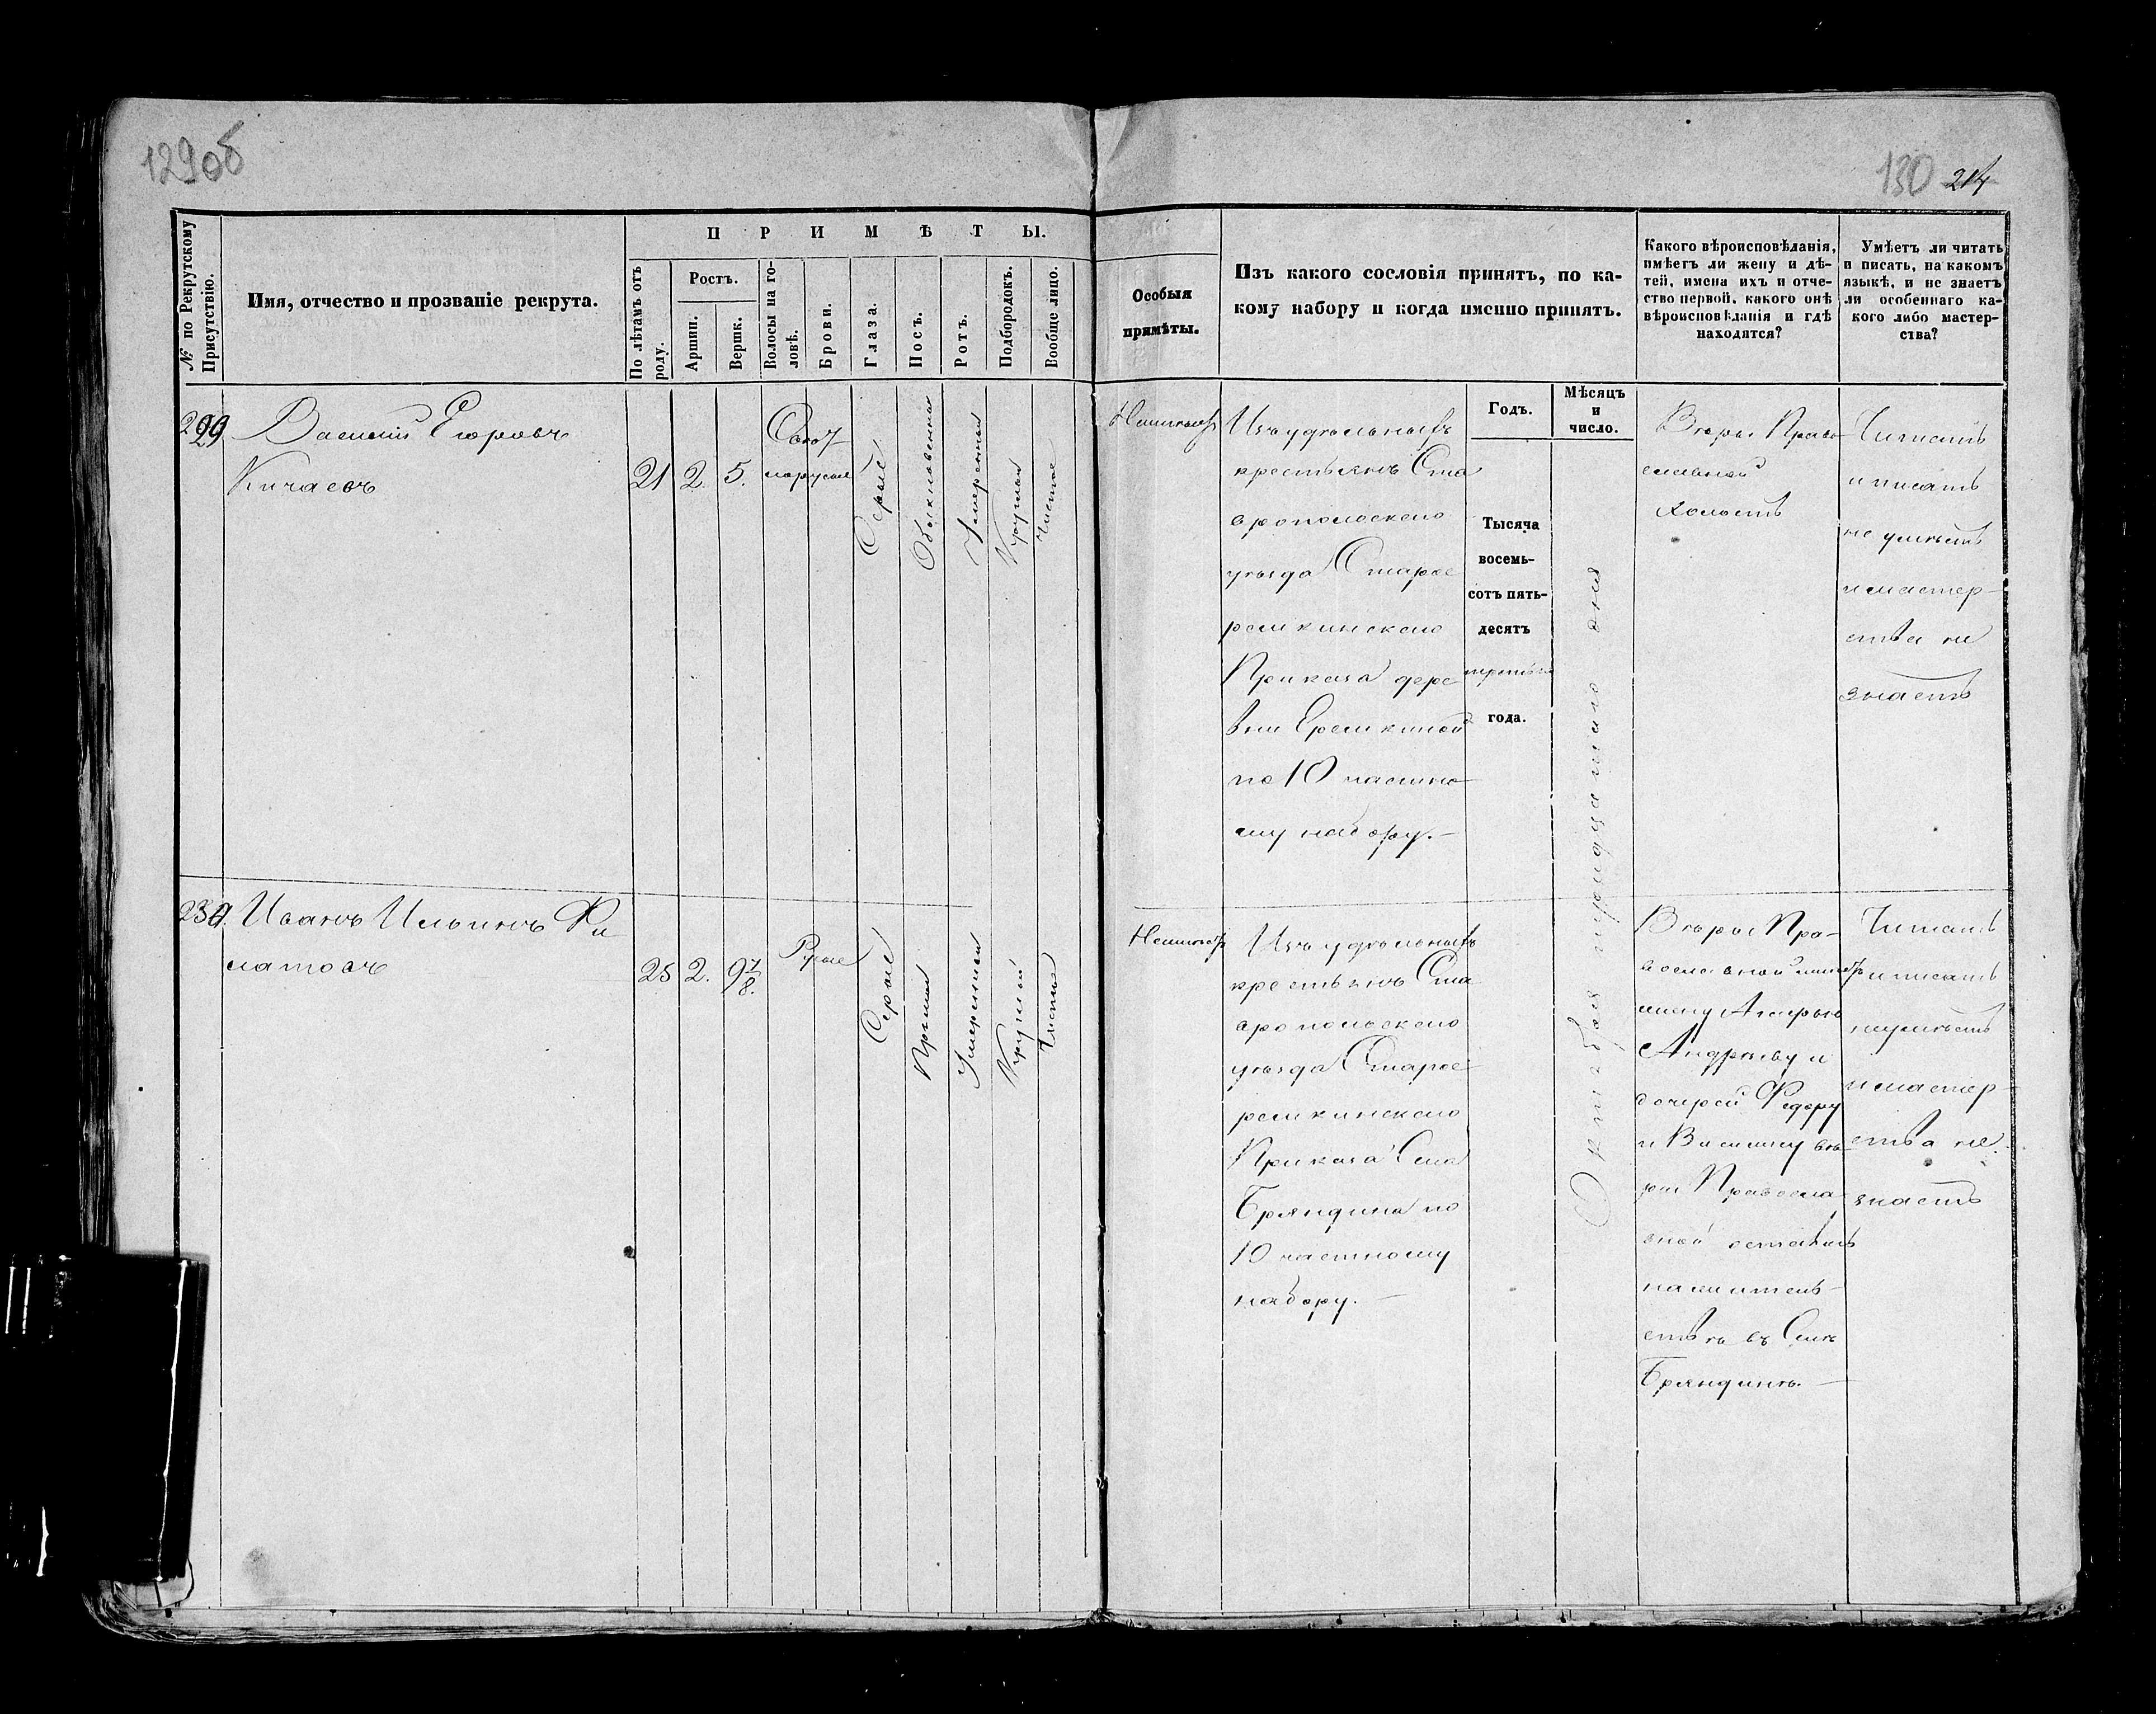 129об
130 214
№ по Рекрутскому Присутствію.
Имя, отчество и прозваніе рекрута.
ПРИМѢТЫ.
По лѣтамъ отъ роду.
Ростъ.
Аршин.
Вершк.
Волосы на головѣ.
Брови.
Глаза.
Носъ.
Ротъ.
Подбородокъ.
Вообще лицо.
Особыя
примѣты.
Изъ какого сословія принятъ, по ка-
кому набору и когда именно принятъ.
Какого вѣроисповѣданія,
имѣетъ ли жену и дѣ-
тей, имена ихъ и отче-
ство первой, какого онѣ
вѣроисповѣданія и гдѣ
находятся?
Умѣетъ ли читать
и писать, на какомъ
языкѣ, и не знаетъ
ли особеннаго ка-
кого либо мастер-
ства?
Годъ.
Мѣсяцъ
и
число.
Тысяча
восемь-
сотъ пять-
десятъ
третьяго
года.
Октября тридцатаго дня
229
Василій Егоровъ
Кичаевъ
21
2.
5.
Свѣт
лорусые
Сѣрые
Обыкновенный
Умеренный
Круглый
Чистое
Неимеетъ
Изъ удѣльныхъ
крестьянъ Ста
вропольскаго
уѣзда Старое
ремкинскаго
Приказа дере
вни Еремкиной
по 10 частно
му набору.-
Вѣры Право
славной
Холостъ
Читать
и писать
не умѣетъ
и мастер-
ства не
знаетъ
230.
Иванъ Ильинъ Фи
латовъ
25
2.
9 7/8.
Русые
Сѣрые
Прямой
Умеренный
Круглый
Чистое
Неимеетъ
Изъ удѣльныхъ
крестьянъ Ста
вропольскаго
уѣзда Старое
ремкинскаго
Приказа Села
Бряндина по
10 частному
набору. -
Вѣры Пра-
вославной имеетъ
жену
Андрееву и
дочерей Федору
и Василису вѣ
ры Правосла
вной оставилъ
на жительс-
твѣ въ Селѣ
Бряндинѣ. -
Читать
и писать
неумѣетъ
и мастер-
ства не
знаетъ